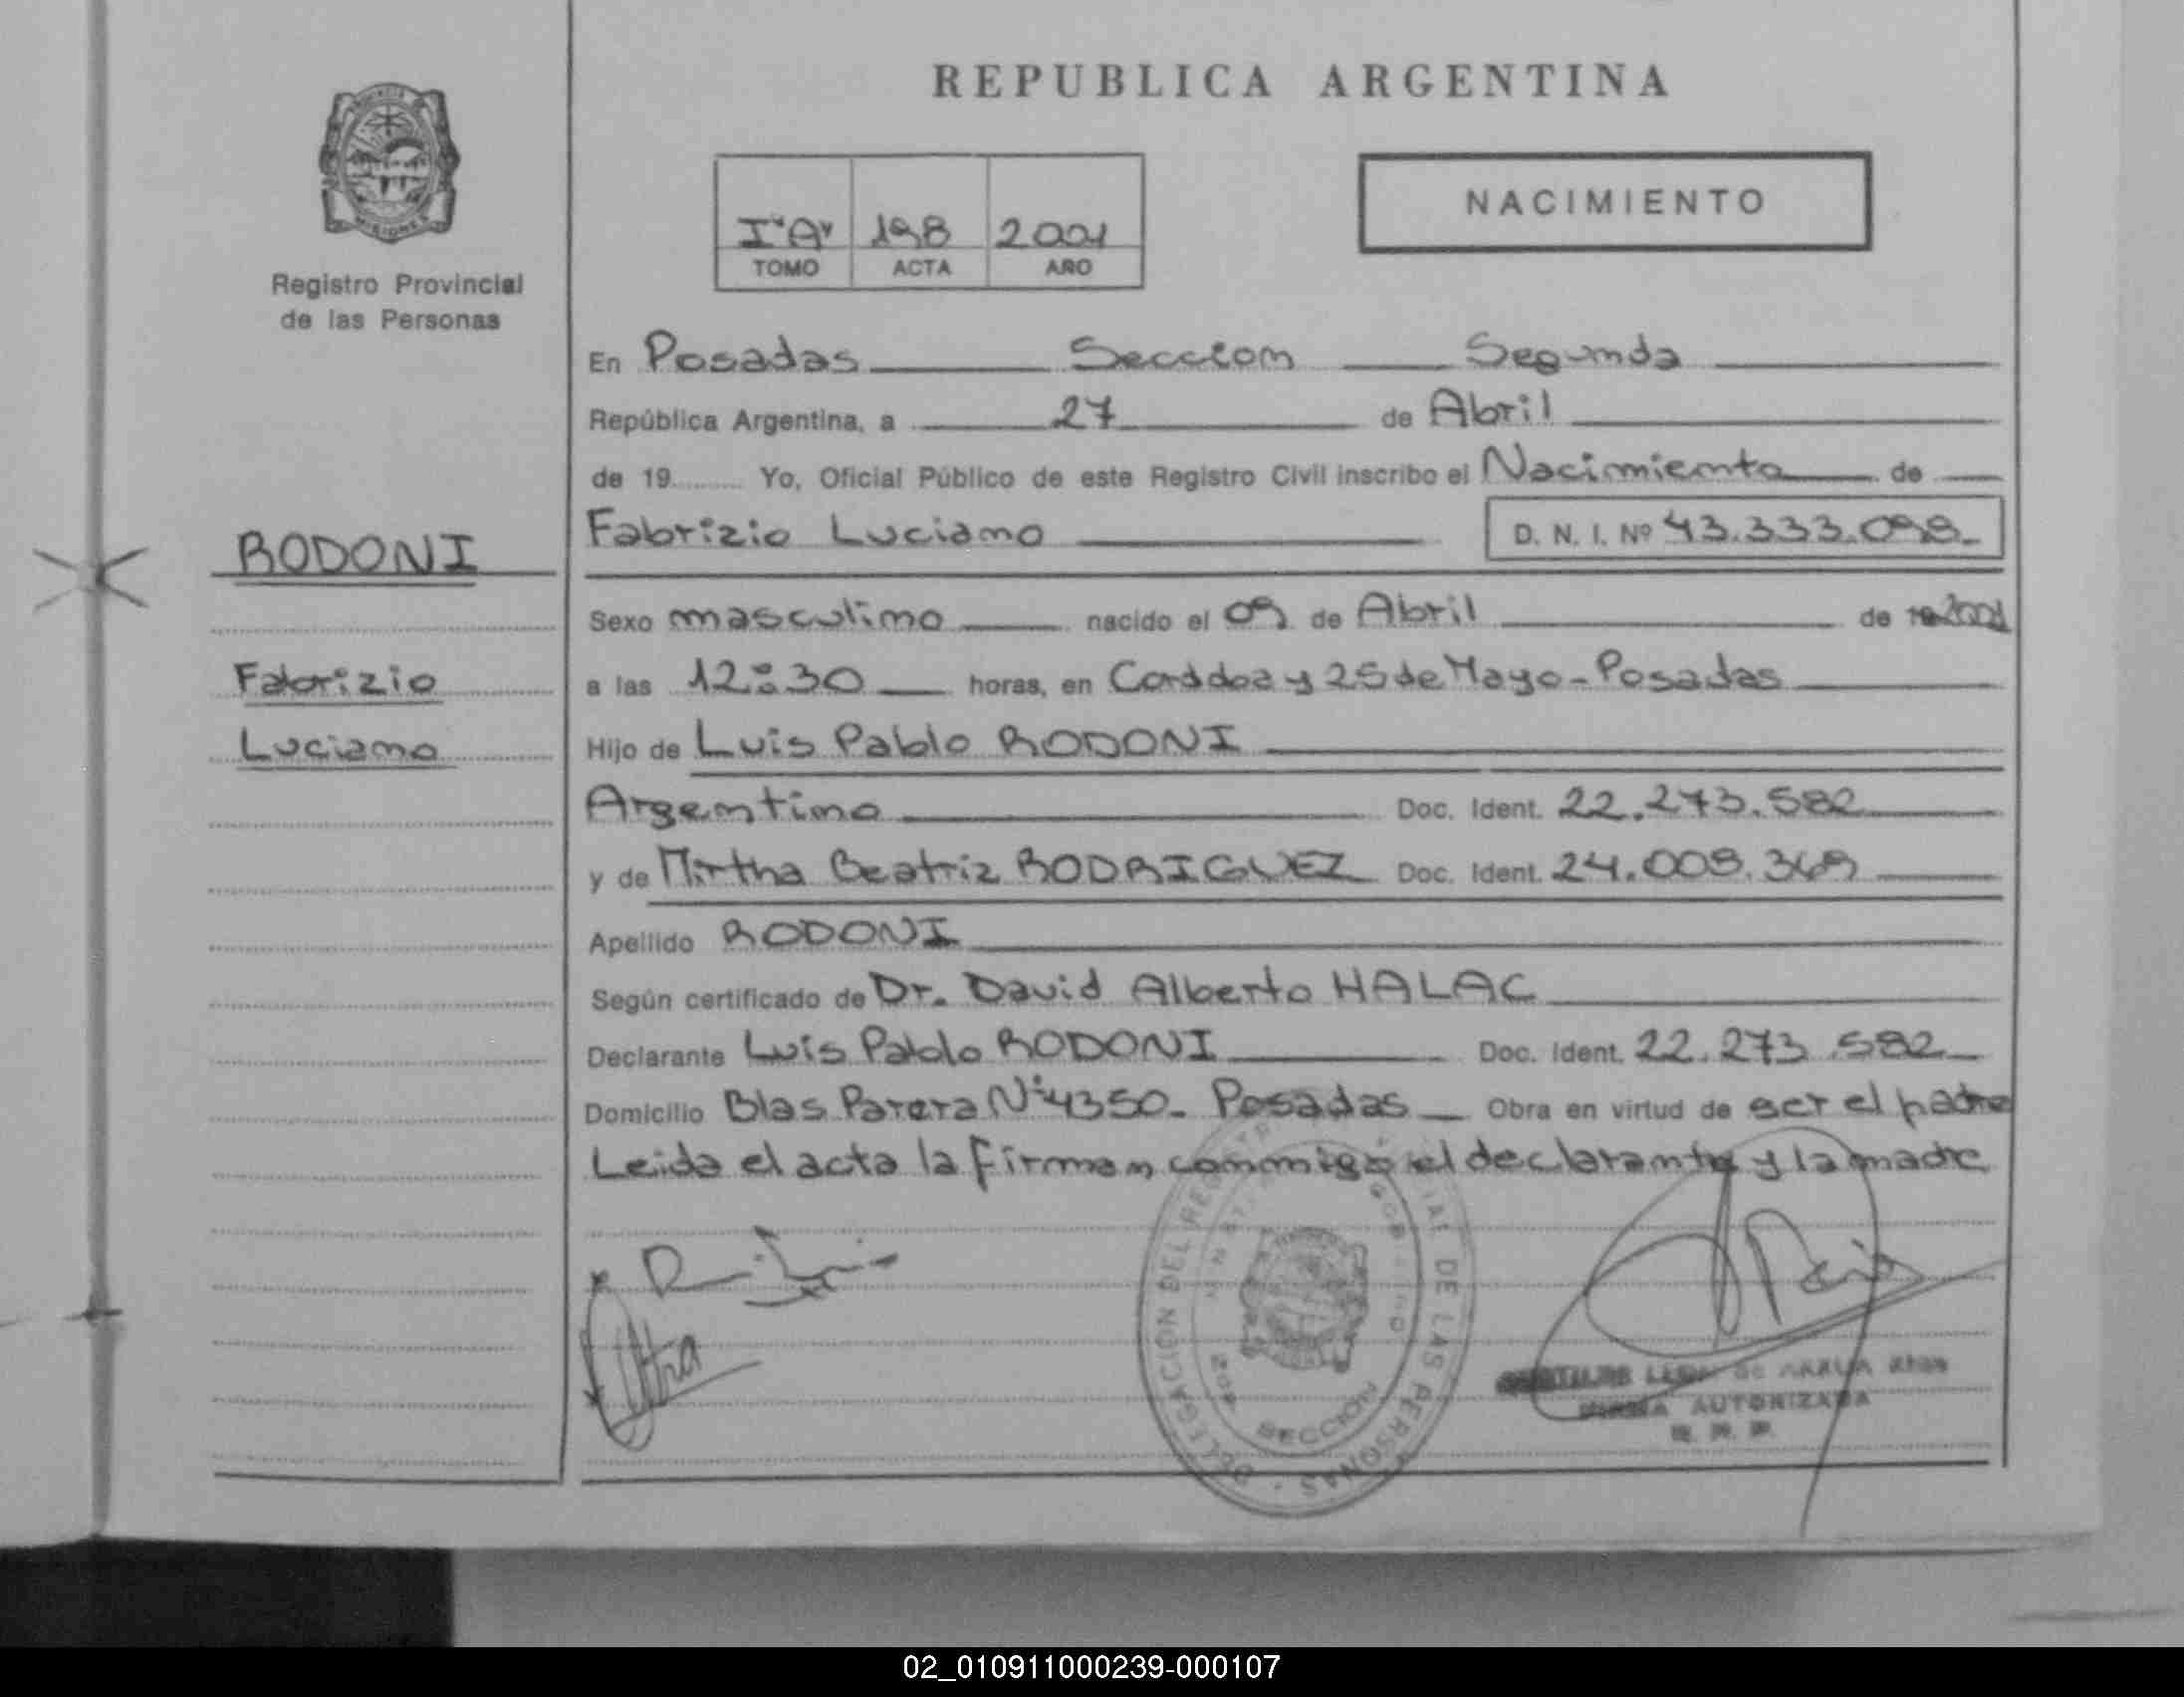 REPUBLICA ARGENTINA
NACIMIENTO
I "A" 198 2001
TOMO ACTA AÑO
Registro Provincial
de las Personas
En Posadas Seccion Segunda
República Argentina, a 27 de Abril
de 19 Yo, Oficial Público de este Registro Civil inscribo el Nacimiento de
RODONI
Fabrizio Luciano D. N. I. Nº 43.333.098
Sexo masculino nacido el 09 de Abril de 2001
Fabrizio
a las 12:30 horas, en Cordoba y 25 de Mayo - Posadas
Luciano
Hijo de Luis Pablo RODONI
Argentino Doc. Ident. 22.273.582
y de Mirtha Beatriz RODRIGUEZ Doc. Ident. 24.009.369
Apellido RODONI
Según certificado de Dr. David Alberto HALAC
Declarante Luis Pablo RODONI Doc. Ident. 22.273.582
Domicilio Blas Parera Nº 4350 - Posadas Obra en virtud de ser el padre
Leida el acta la firman conmigo el declarante y la madre
DELEGACION DEL DE LAS PERSONAS
SECCION
AUTORIZADA
02_010911000239-000107